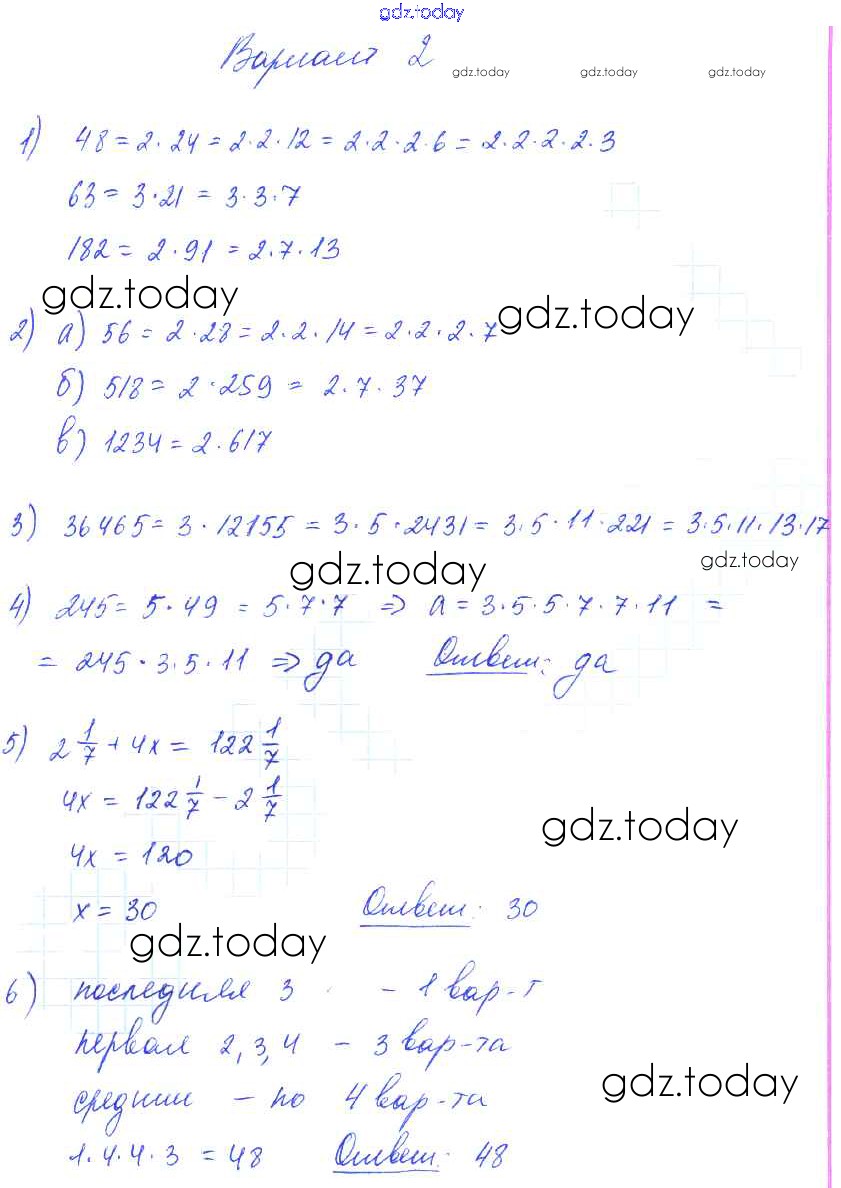 gdz.today
Вариант 2
gdz.today gdz.today gdz.today
1) 48 = 2·24 = 2·2·12 = 2·2·2·6 = 2·2·2·2·3
63 = 3·21 = 3·3·7
182 = 2·91 = 2·7·13
gdz.today
gdz.today
2) а) 56 = 2·28 = 2·2·14 = 2·2·2·7
б) 518 = 2·259 = 2·7·37
в) 1234 = 2·617
3) 36465 = 3·12155 = 3·5·2431 = 3·5·11·221 = 3·5·11·13·17
gdz.today
gdz.today
4) 245 = 5·49 = 5·7·7 => а = 3·5·5·7·7·11 =
= 245·3·5·11 => да Ответ: да
5) 2 1/7 + 4x = 122 1/7
4x = 122 1/7 - 2 1/7
gdz.today
4x = 120
x = 30 Ответ: 30
gdz.today
6) последняя 3 - 1 вар-т
первая 2, 3, 4 - 3 вар-та
gdz.today
средние - по 4 вар-та
1·4·4·3 = 48 Ответ: 48